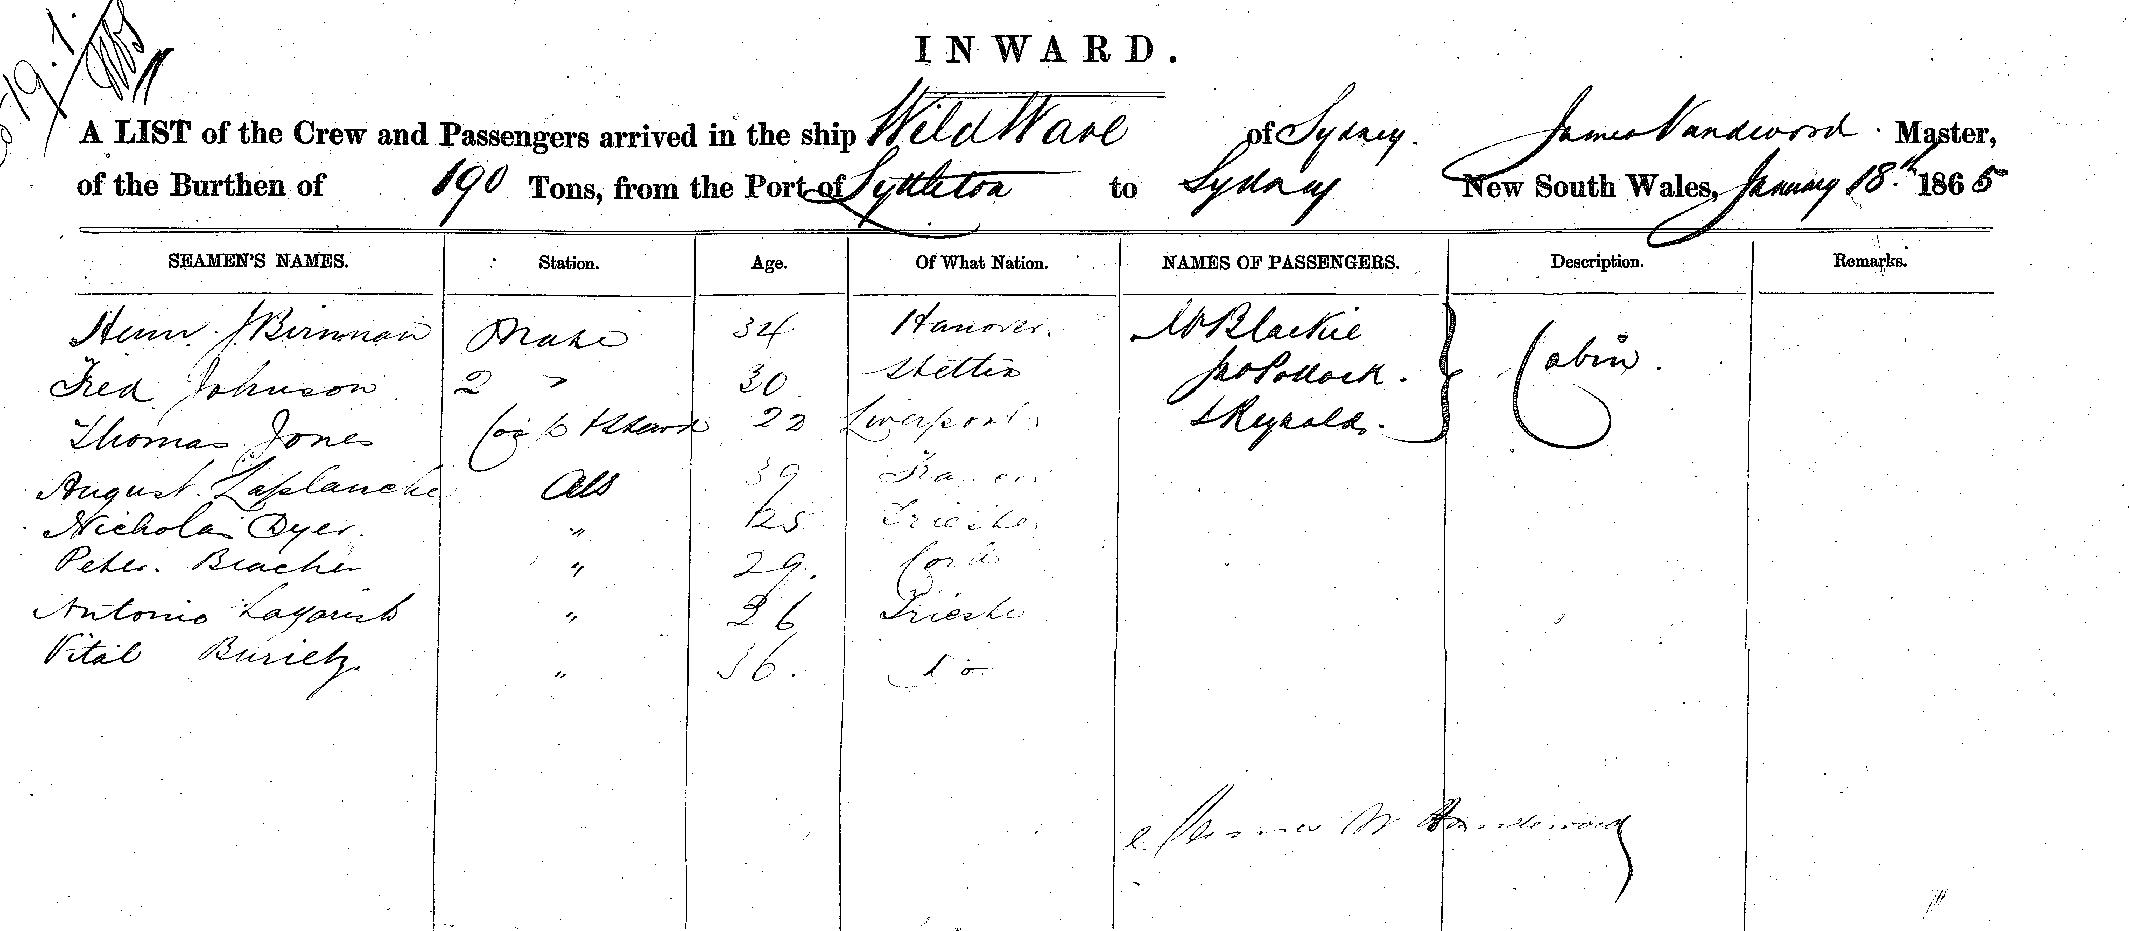 INWARD.
A LIST of the Crew and Passengers arrived in the ship Wild Wave of Sydney. James Vandewood. Master,
of the Burthen of 190 Tons, from the Port of Lyttleton to Sydney New South Wales, January 18th 1865
SEAMEN'S NAMES. Station. Age. Of What Nation. NAMES OF PASSENGERS. Description. Remarks.
34 Hanover. Blackie
Fred Johnson 2 " 30 Stettin Jno Pollock. Cabin.
Thomas Jones Cook & Steward 22 Liverpool Reynolds.
August. Laplanche AB 39 France
Nicholas Dyer. " 25 Trieste
Peter. " 29. Cork
Antonio " 26 Trieste
Vital " 36. Do
James W